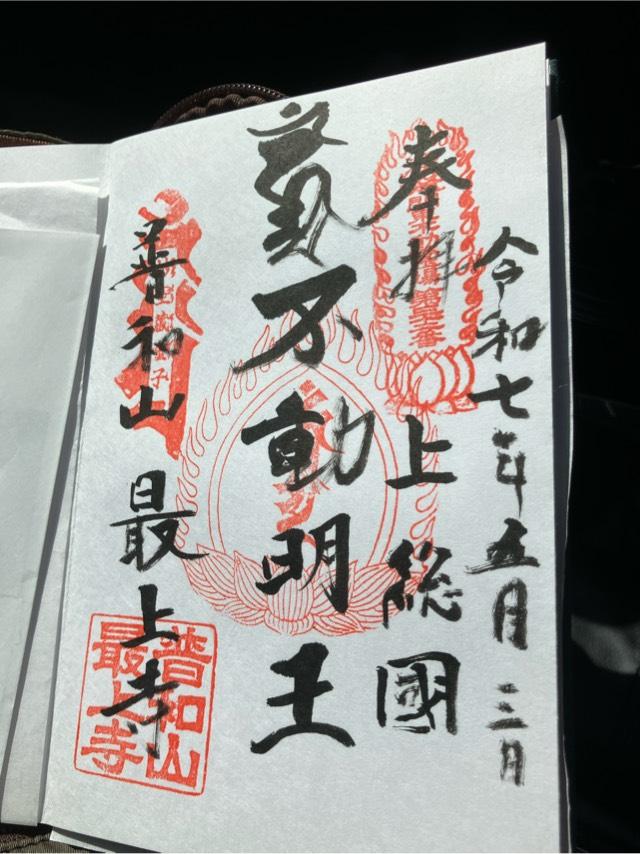 令和七年五月三日
奉拝 上総國
不動明王
普和山 最上寺
普和山
最上寺